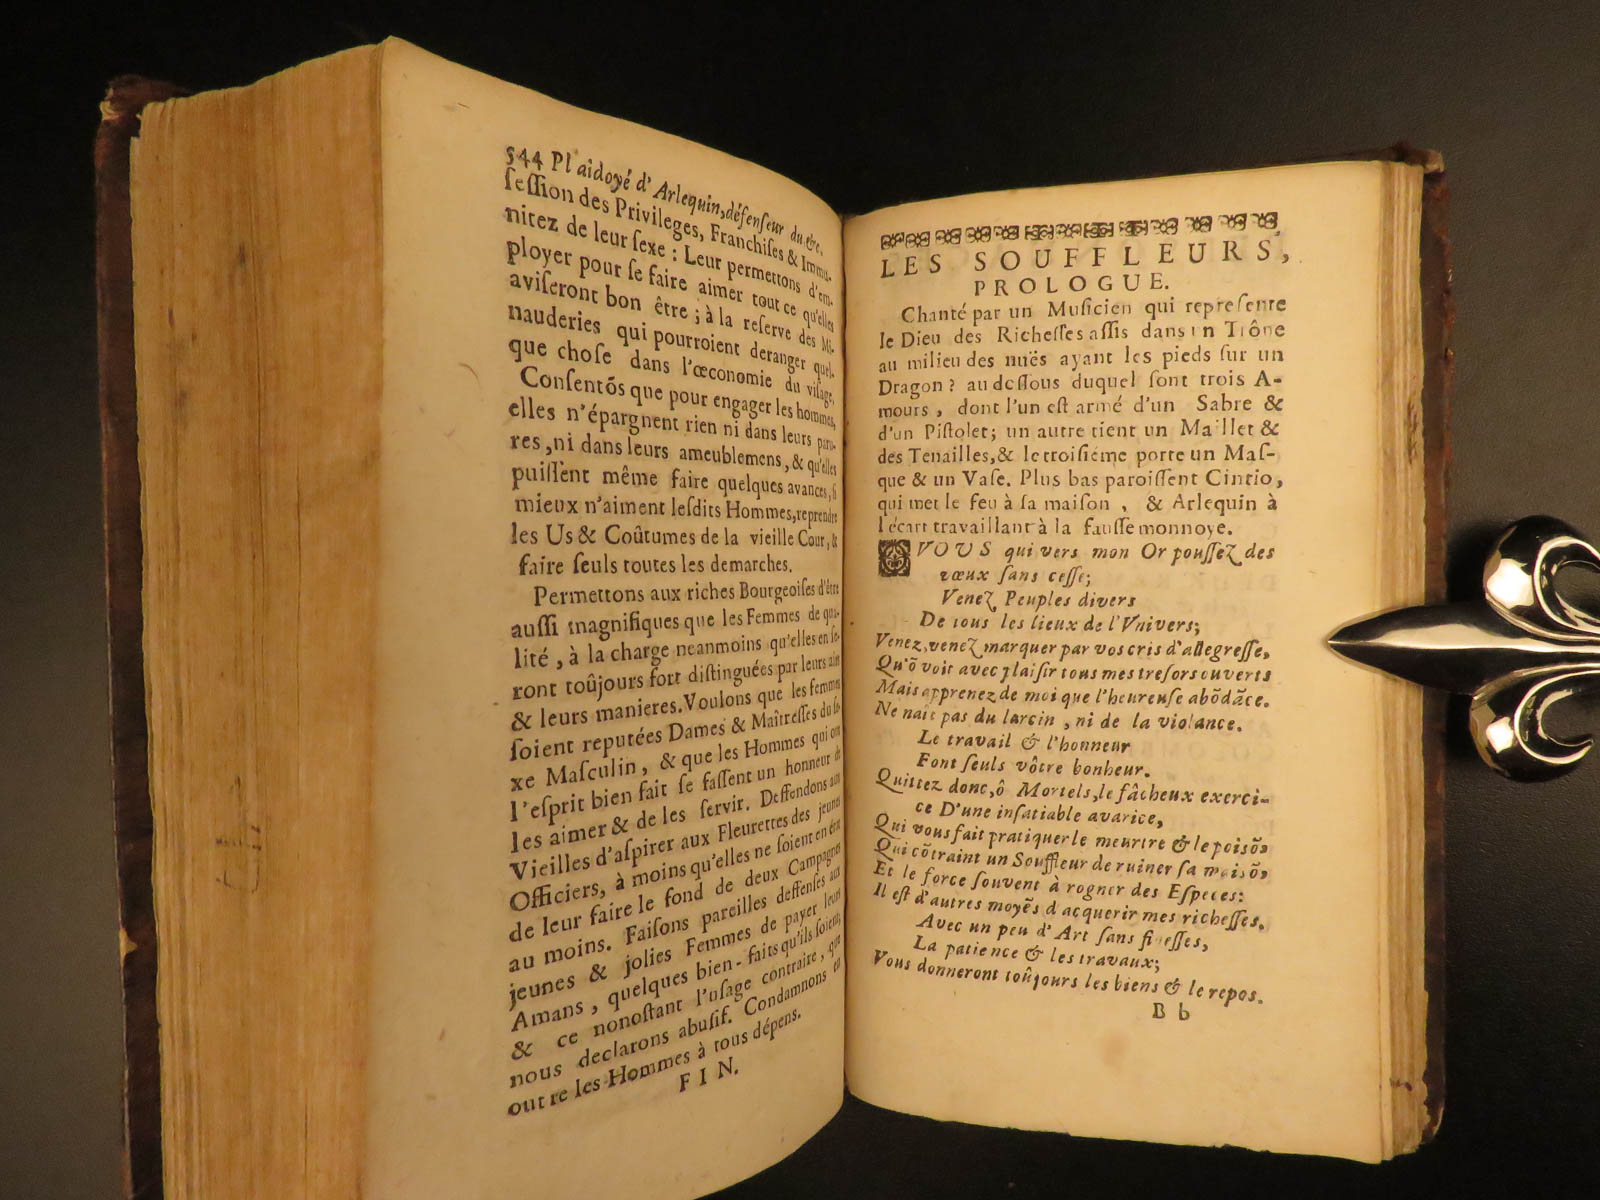 544 Plaidoyé d'Arlequin, défenseur du &c.
ſeſſion des Privileges, Franchiſes & Immu-
nitez de leur ſexe : Leur permettons d'em-
ployer pour ſe faire aimer tout ce qu'elles
aviſeront bon être ; à la reſerve des Mi-
nauderies qui pourroient deranger quel-
que choſe dans l'œconomie du viſage,
Conſentõs que pour engager les hommes,
elles n'épargnent rien ni dans leurs paru-
res, ni dans leurs ameublemens, & qu'elles
puiſſent même faire quelques avances, ſi
mieux n'aiment leſdits Hommes, reprendre
les Us & Coûtumes de la vieille Cour, &
faire ſeuls toutes les demarches.
Permettons aux riches Bourgeoiſes d'être
auſſi magnifiques que les Femmes de qua-
lité, à la charge neanmoins qu'elles en ſe-
ront toûjours fort diſtinguées par leurs airs
& leurs manieres. Voulons que les femmes
ſoient reputées Dames & Maîtreſſes du ſe-
xe Maſculin, & que les Hommes qui ont
l'eſprit bien fait ſe faſſent un honneur de
les aimer & de les ſervir. Deffendons aux
Vieilles d'aſpirer aux Fleurettes des jeunes
Officiers, à moins qu'elles ne ſoient en état
de leur faire le fond de deux Campagnes
au moins. Faiſons pareilles deffenſes aux
jeunes & jolies Femmes de payer leurs
Amans, quelques bien-faits qu'ils ſoient,
& ce nonoſtant l'uſage contraire, que
nous declarons abuſif. Condamnons en
outre les Hommes à tous dépens.
FIN.
LES SOUFFLEURS,
PROLOGUE.
Chanté par un Muſicien qui repreſente
le Dieu des Richeſſes aſſis dans un Trône
au milieu des nuës ayant les pieds ſur un
Dragon ? au deſſous duquel ſont trois A-
mours, dont l'un eſt armé d'un Sabre &
d'un Piſtolet; un autre tient un Maillet &
des Tenailles, & le troiſiéme porte un Maſ-
que & un Vaſe. Plus bas paroiſſent Cintio,
qui met le feu à ſa maiſon, & Arlequin à
l'écart travaillant à la fauſſe monnoye.
VOUS qui vers mon Or pouſſez des
vœux ſans ceſſe;
Venez Peuples divers
De tous les lieux de l'Vnivers;
Venez, venez marquer par vos cris d'allegreſſe,
Qu'õ voit avec plaiſir tous mes treſors ouverts
Mais apprenez de moi que l'heureuſe abõdãce.
Ne nait pas du larcin, ni de la violance.
Le travail & l'honneur
Font ſeuls vôtre bonheur.
Quittez donc, ô Mortels, le fâcheux exerci-
ce D'une inſatiable avarice,
Qui vous fait pratiquer le meurtre & le poisõ,
Qui cõtraint un Souffleur de ruiner ſa maisõ,
Et le force ſouvent à rogner des Eſpeces:
Il eſt d'autres moyẽs d'acquerir mes richeſſes.
Avec un peu d'Art ſans fineſſes,
La patience & les travaux;
Vous donneront toûjours les biens & le repos.
B b